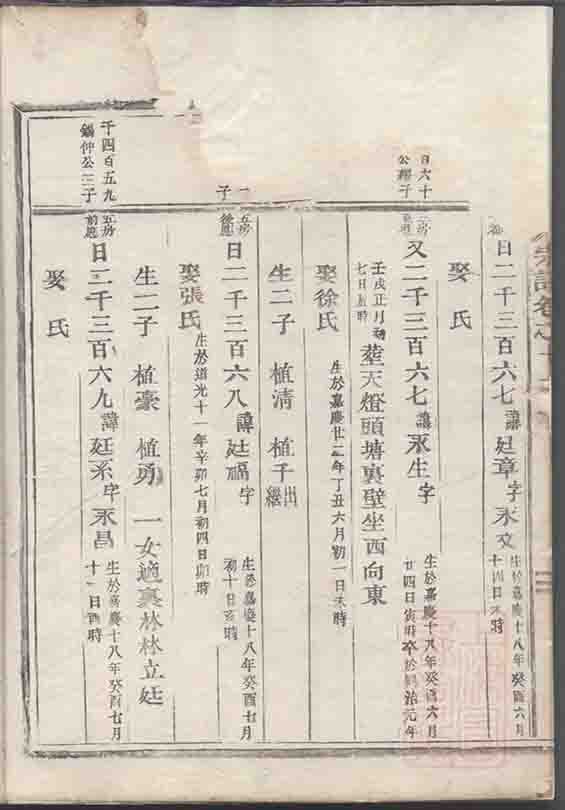 宗譜卷之十
日二千三百六七 諱廷章 字永文 生於嘉慶十八年癸酉六月
十四日未時
娶 氏
日六十
公 子
三房
又二千三百六七 諱永生 字 生於嘉慶十八年癸酉六月
廿四日寅時卒於同治元年
壬戌正月初
七日 時 葬天燈頭塘裏壁坐西向東
娶徐氏 生於嘉慶廿二年丁丑六月初一日未時
生二子 植清 植千出繼
一子
五房
後恩
日二千三百六八 諱廷福 字 生於嘉慶十八年癸酉七月
初十日亥時
娶張氏 生於道光十一年辛卯七月初四日卯時
生二子 植豪 植勇 一女適裏林林立廷
千四百五九
錫仲公三子
五房
前恩
日二千三百六九 諱廷系 字永昌 生於嘉慶十八年癸酉七月
十一日酉時
娶 氏